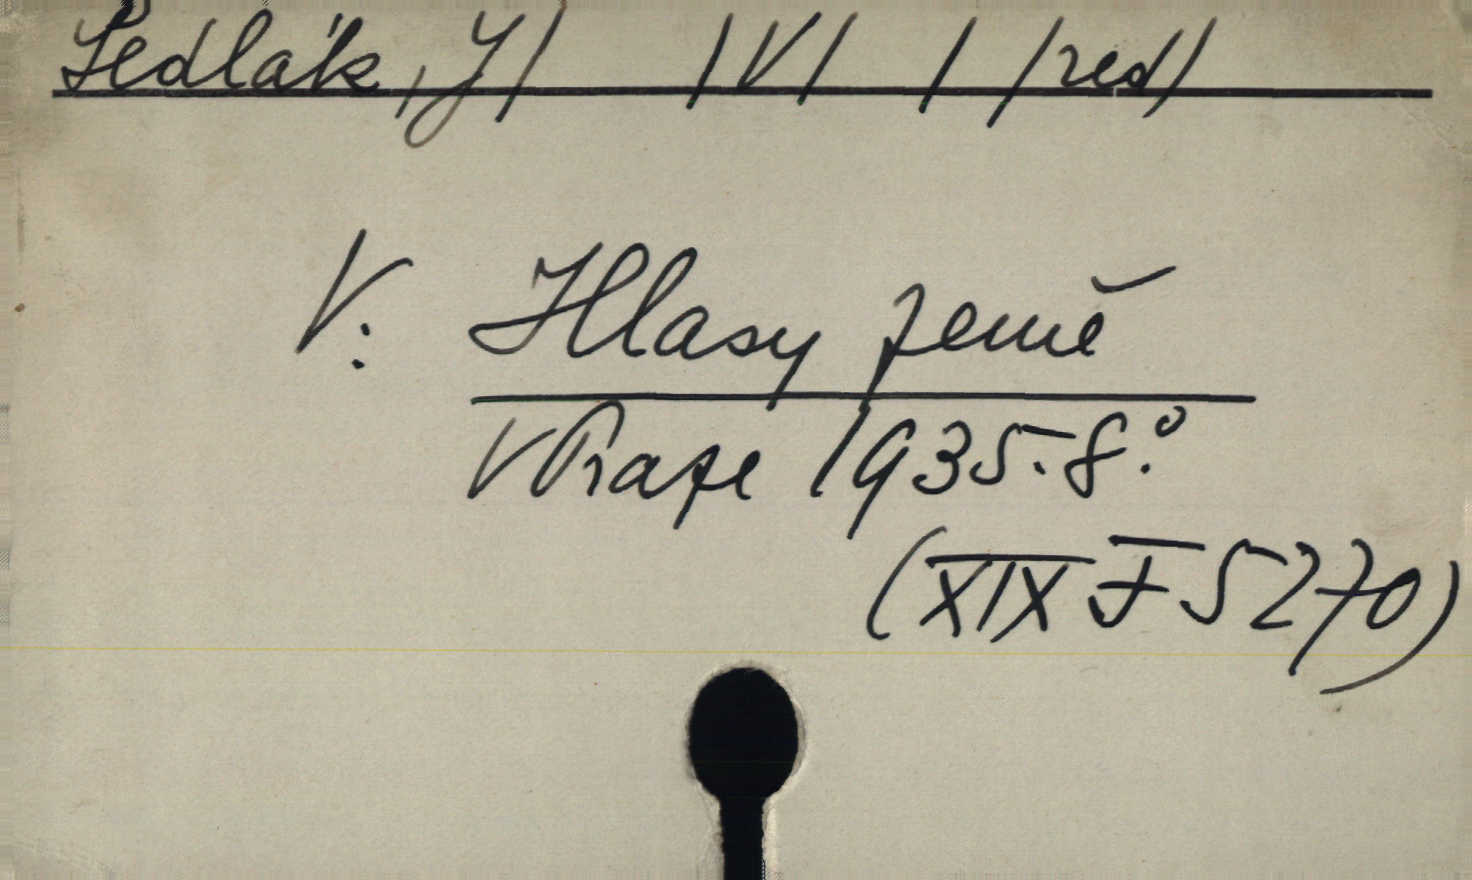 Sedlák, J/ /V/ / /red/
V: Hlasy země
V Praze 1935.-8.°
(XIX J 5270)